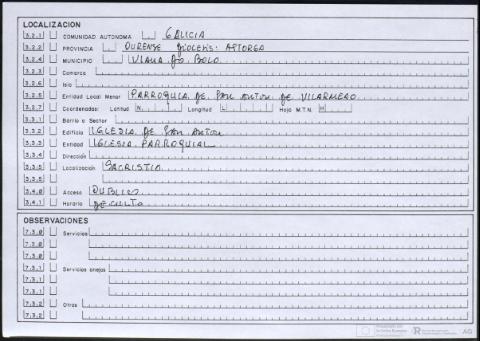 LOCALIZACION
3.2.1 COMUNIDAD AUTONOMA GALICIA
3.2.2 PROVINCIA OURENSE DIOCESIS: ASTORGA
3.2.4 MUNICIPIO VIANA DO BOLO
3.2.3 Comarca
3.2.6 Isla
3.2.5 Entidad Local Menor PARROQUIA DE SAN ANTON DE VILARMEAO
3.2.7 Coordenadas: Latitud N Longitud L Hoja M.T.N. H
3.3.1 Barrio o Sector
3.3.2 Edificio IGLESIA DE SAN ANTON
3.3.3 Entidad IGLESIA PARROQUIAL
3.3.4 Dirección
3.3.5 Localización SACRISTIA
3.3.5
3.4.0 Acceso PUBLICO
3.4.1 Horario DE CULTO
OBSERVACIONES
7.3.0 Servicios
7.3.0
7.3.0
7.3.1 Servicios anejos
7.3.1
7.3.1
7.3.2 Otros
7.3.2
AG